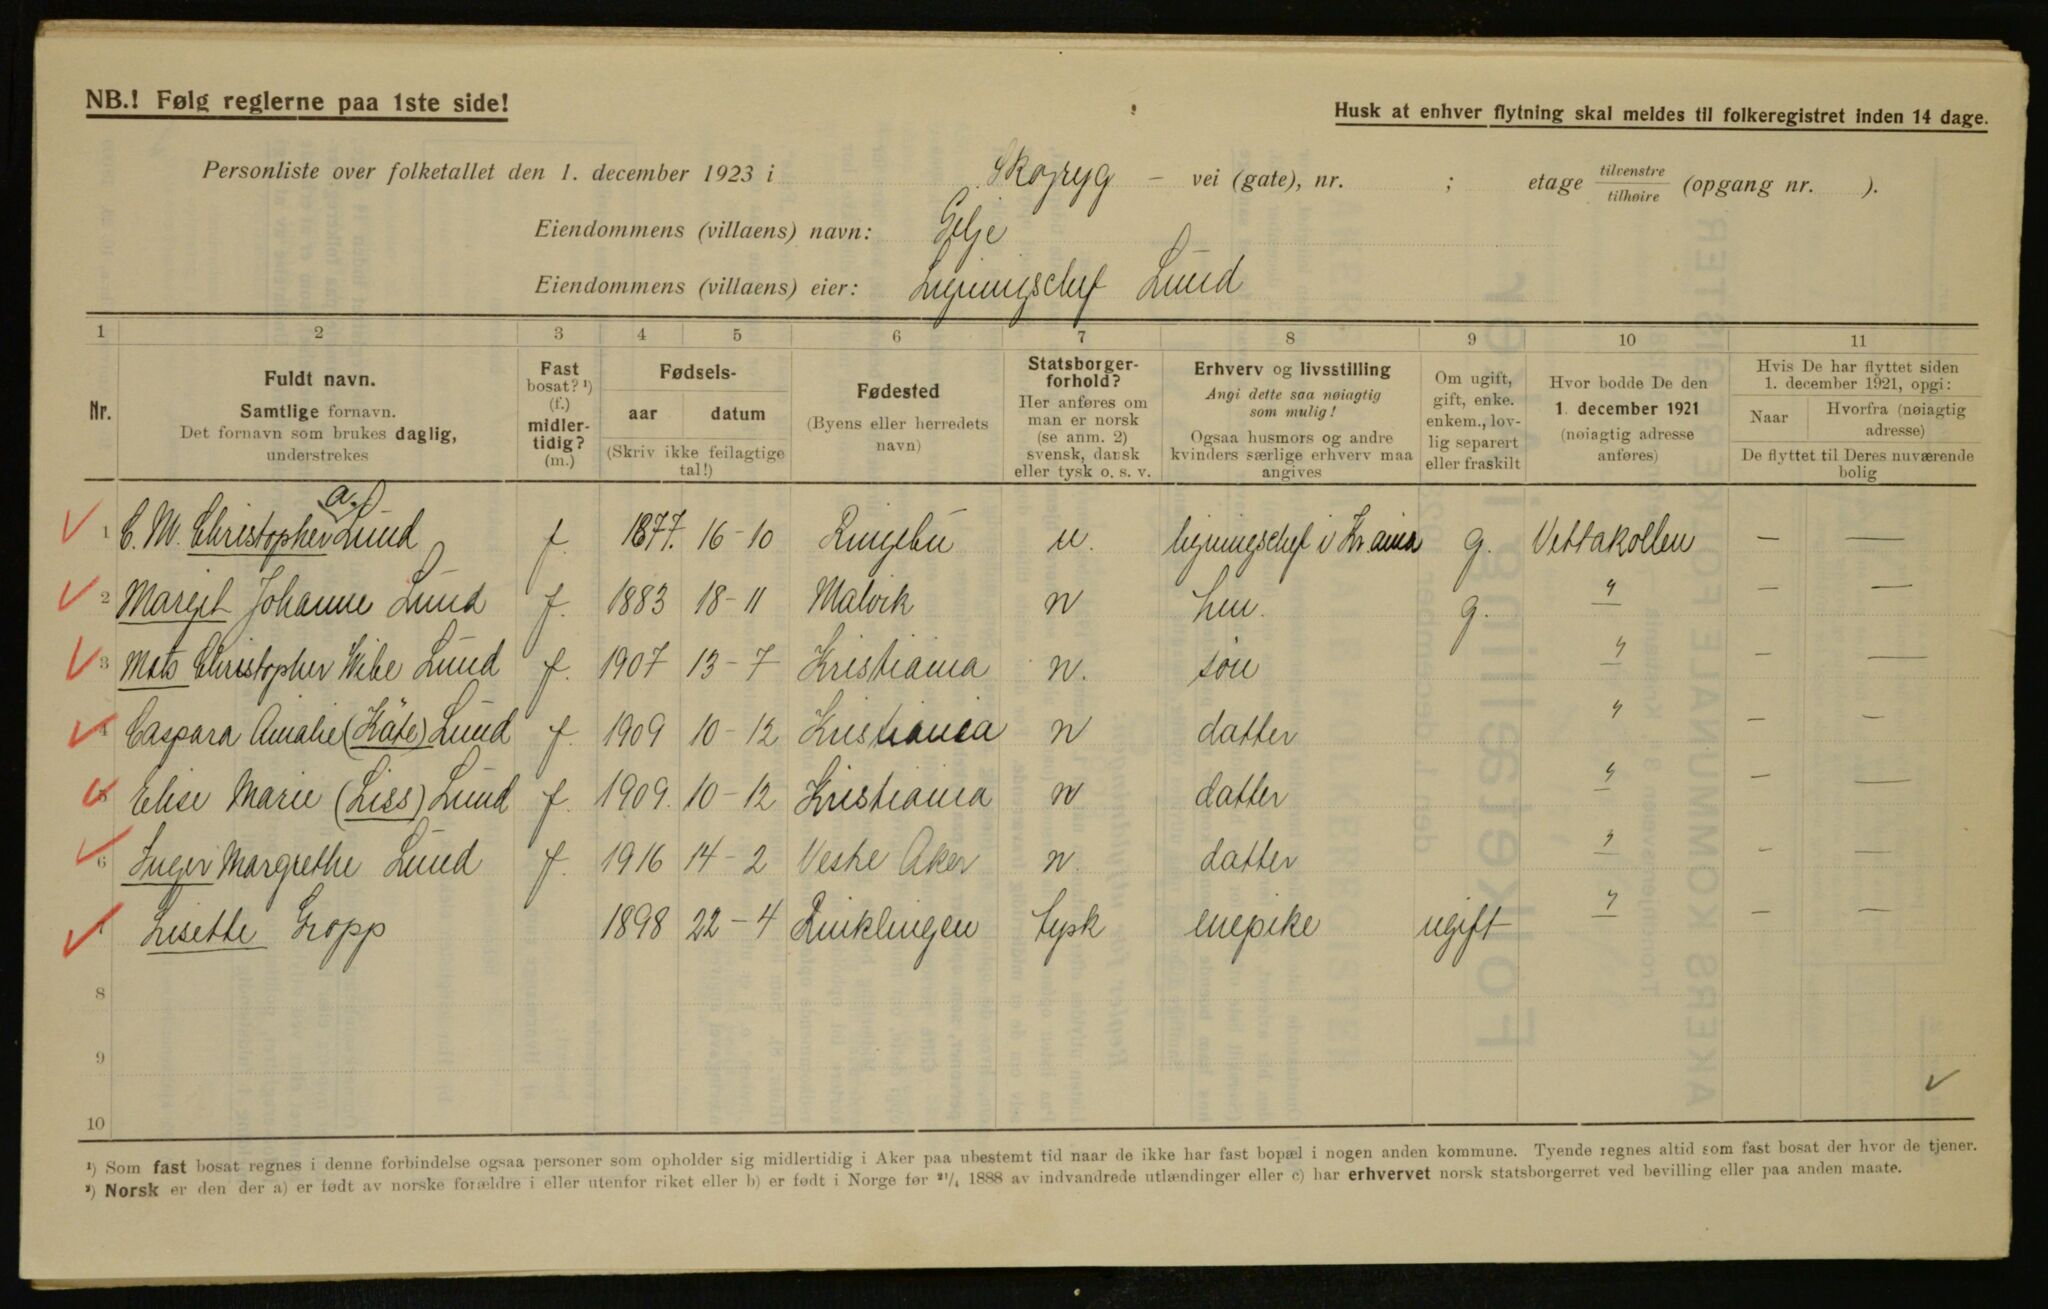 NB.! Følg reglerne paa 1ste side!
Husk at enhver flytning skal meldes til folkeregistret inden 14 dage.
Personliste over folketallet den 1. december 1923 i Skogryg - vei (gate), nr. ; etage tilvenstre tilhøire (opgang nr. ).
Eiendommens (villaens) navn: Gilje
Eiendommens (villaens) eier: Ligningschef Lund
1 2 3 4 5 6 7 8 9 10 11
Nr.
Fuldt navn.
Samtlige fornavn.
Det fornavn som brukes daglig,
understrekes
Fast
bosat? ¹)
(f.)
midler-
tidig?
(m.)
Fødsels-
aar datum
(Skriv ikke feilagtige
tal!)
Fødested
(Byens eller herredets
navn)
Statsborger-
forhold?
Her anføres om
man er norsk
(se anm. 2)
svensk, dansk
eller tysk o. s. v.
Erhverv og livsstilling
Angi dette saa nøiagtig
som mulig!
Ogsaa husmors og andre
kvinders særlige erhverv maa
angives
Om ugift,
gift, enke.
enkem., lov-
lig separert
eller fraskilt
Hvor bodde De den
1. december 1921
(nøiagtig adresse
anføres)
Hvis De har flyttet siden
1. december 1921, opgi:
Naar
Hvorfra (nøiagtig
adresse)
De flyttet til Deres nuværende
bolig
1 C. M. Christopher Lund f. 1877. 16-10 Ringebu n. ligningschef i Kr.ania g. Vettakollen — —
2 Margit Johanne Lund f. 1883 18-11 Malvik n hm. g. " — —
3 Mats Christopher Wibe Lund f. 1907 13-7 Kristiania n. søn " — —
4 Caspara Amalie (Käte) Lund f. 1909 10-12 Kristiania n datter " — —
5 Elise Marie (Liss) Lund f. 1909. 10-12 Kristiania n datter " — —
6 Inger Margrethe Lund f. 1916 14-2 Vestre Aker n. datter " — —
Lisette Gropp 1898 22-4 Rinklingen tysk enepike ugift " — —
8
9
10
¹) Som fast bosat regnes i denne forbindelse ogsaa personer som opholder sig midlertidig i Aker paa ubestemt tid naar de ikke har fast bopæl i nogen anden kommune. Tyende regnes altid som fast bosat der hvor de tjener.
²) Norsk er den der a) er født av norske forældre i eller utenfor riket eller b) er født i Norge før ²¹/₄ 1888 av indvandrede utlændinger eller c) har erhvervet norsk statsborgerret ved bevilling eller paa anden maate.